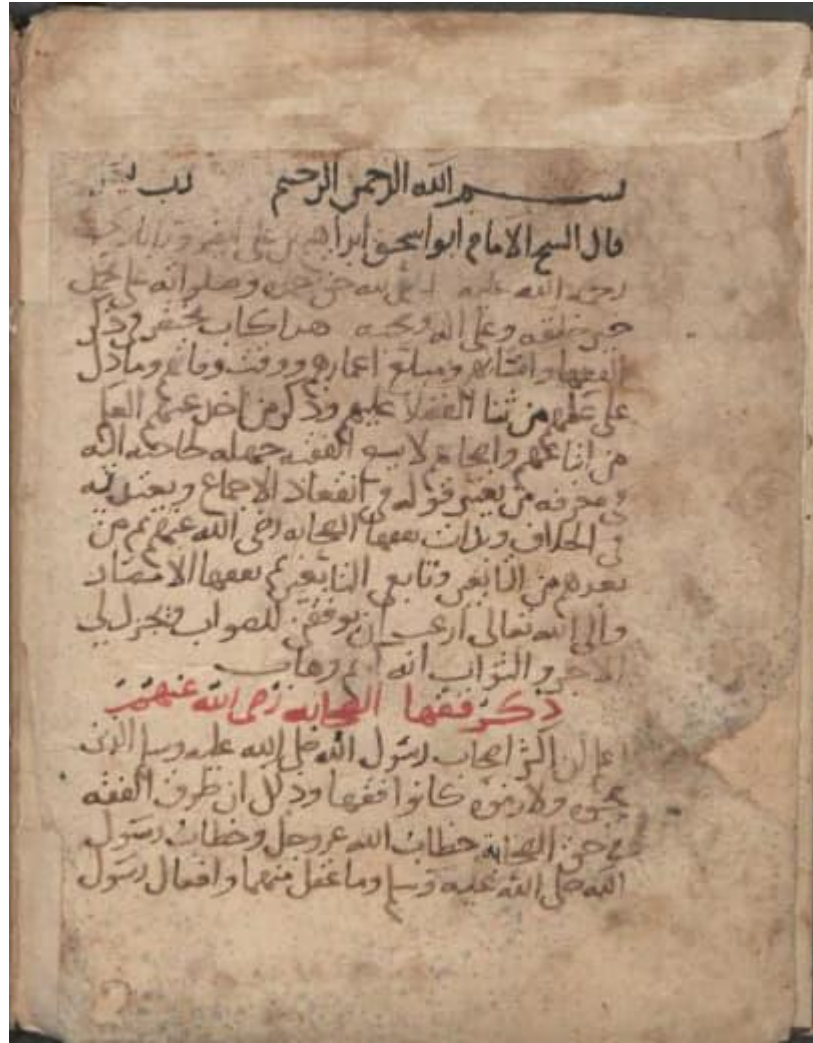 بسم الله الرحمن الرحيم رب يسر
قال الشيخ الامام ابو اسحق ابراهيم بن علي
رحمة الله عليه الحمد لله حق حمده وصلواته على محمد
خير خلقه وعلى اله وصحبه هذا كتاب مختصر في ذكر
الفقها وانسابهم ومبلغ اعمارهم ووقت وفاتهم وما دل
على علمهم من ثنا الفضلا عليهم وذكر من اخذ عنهم العلم
من اتباعهم واصحابهم لا يسع الفقيه جهله لحاجته اليه
في معرفة من يعتبر قوله في انعقاد الاجماع ويعتد به
في الخلاف وبدات بفقها الصحابه رضي الله عنهم ثم من
بعدهم من التابعين وتابعي التابعين ثم بفقها الامصار
والى الله تعالى ارغب ان يوفقني للصواب ويجزل لي
الاجر والثواب انه كريم وهاب
ذكر فقها الصحابه رضي الله عنهم
اعلم ان اكثر اصحاب رسول الله صلى الله عليه وسلم الذين
صحبوه ولازموه كانوا فقها وذلك ان طرق الفقه
في حق الصحابة خطاب الله عز وجل وخطاب رسول
الله صلى الله عليه وسلم وما عقل منهما وافعال رسول